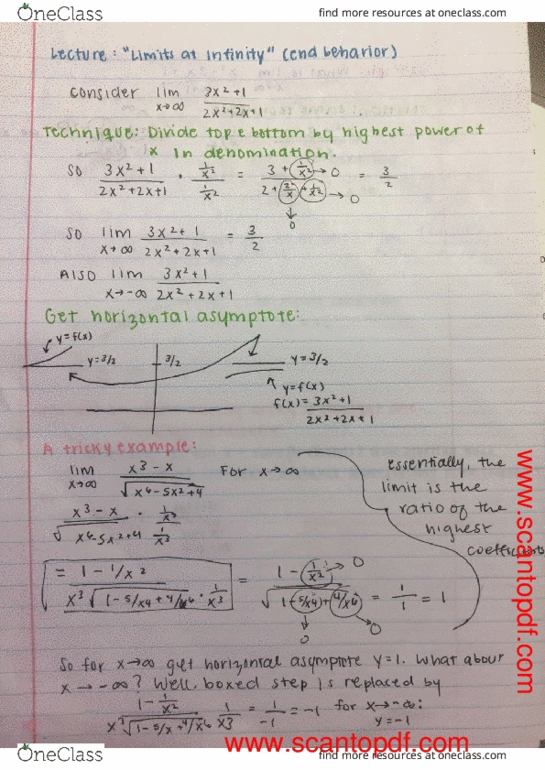 OneClass
find more resources at oneclass.com
Lecture: "Limits at infinity" (end behavior)
consider lim x→∞ 3x²+1 / 2x²+2x+1
Technique: Divide top & bottom by highest power of
x in denomination.
so 3x²+1 / 2x²+2x+1 · 1/x² / 1/x² = 3 + 1/x² → 0 / 2 + 2x/x² + 1/x² → 0 = 3/2
0
so lim x→∞ 3x²+1 / 2x²+2x+1 = 3/2
Also lim x→-∞ 3x²+1 / 2x²+2x+1
Get horizontal asymptote:
y=f(x)
y=3/2
3/2
y=3/2
y=f(x)
f(x)= 3x²+1 / 2x²+2x+1
A tricky example:
lim x→∞ x3-x / √x6-5x2+4 For x→∞
x3-x / √x6-5x2+4 · 1/x3 / 1/x3
essentially, the
limit is the
ratio of the
highest
coefficients
= 1-1/x2 / x3 √1-5/x4+4/x6 · 1/x3 = 1 - 1/x2 → 0 / √1-5/x4+4/x6 = 1/1 = 1
0
0
So for x→∞ get horizontal asymptote y=1. What about
x→-∞? Well, boxed step is replaced by
1-1/x2 / x3 √1-5/x+4/x6 1/x3 = 1/-1 = -1 for x→-∞:
y=-1
www.scantopdf.com
www.scantopdf.com
OneClass
find more resources at oneclass.com